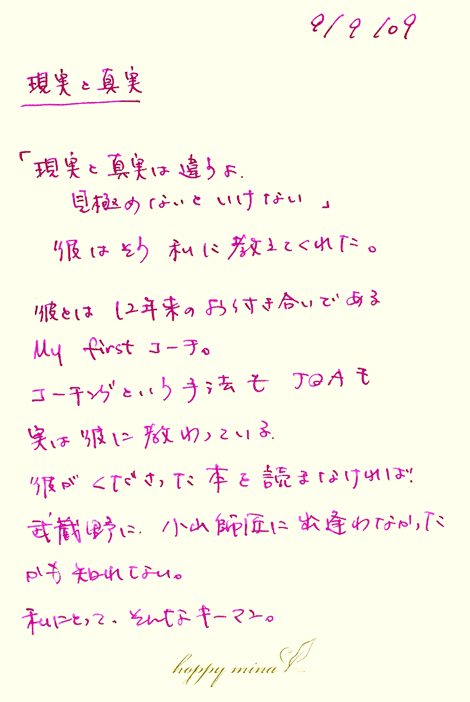 9/9/09
現実と真実
「現実と真実は違うよ.
見極めないといけない」
彼はそう 私に教えてくれた。
彼とは 12年来のお付き合いである
My first コーチ。
コーチングという手法も JQAも
実は彼に教わっている.
彼がくださった本を読まなければ!
武蔵野に、小山師匠に出逢わなかった
かも知れない。
私にとって、そんなキーマン。
happy mina